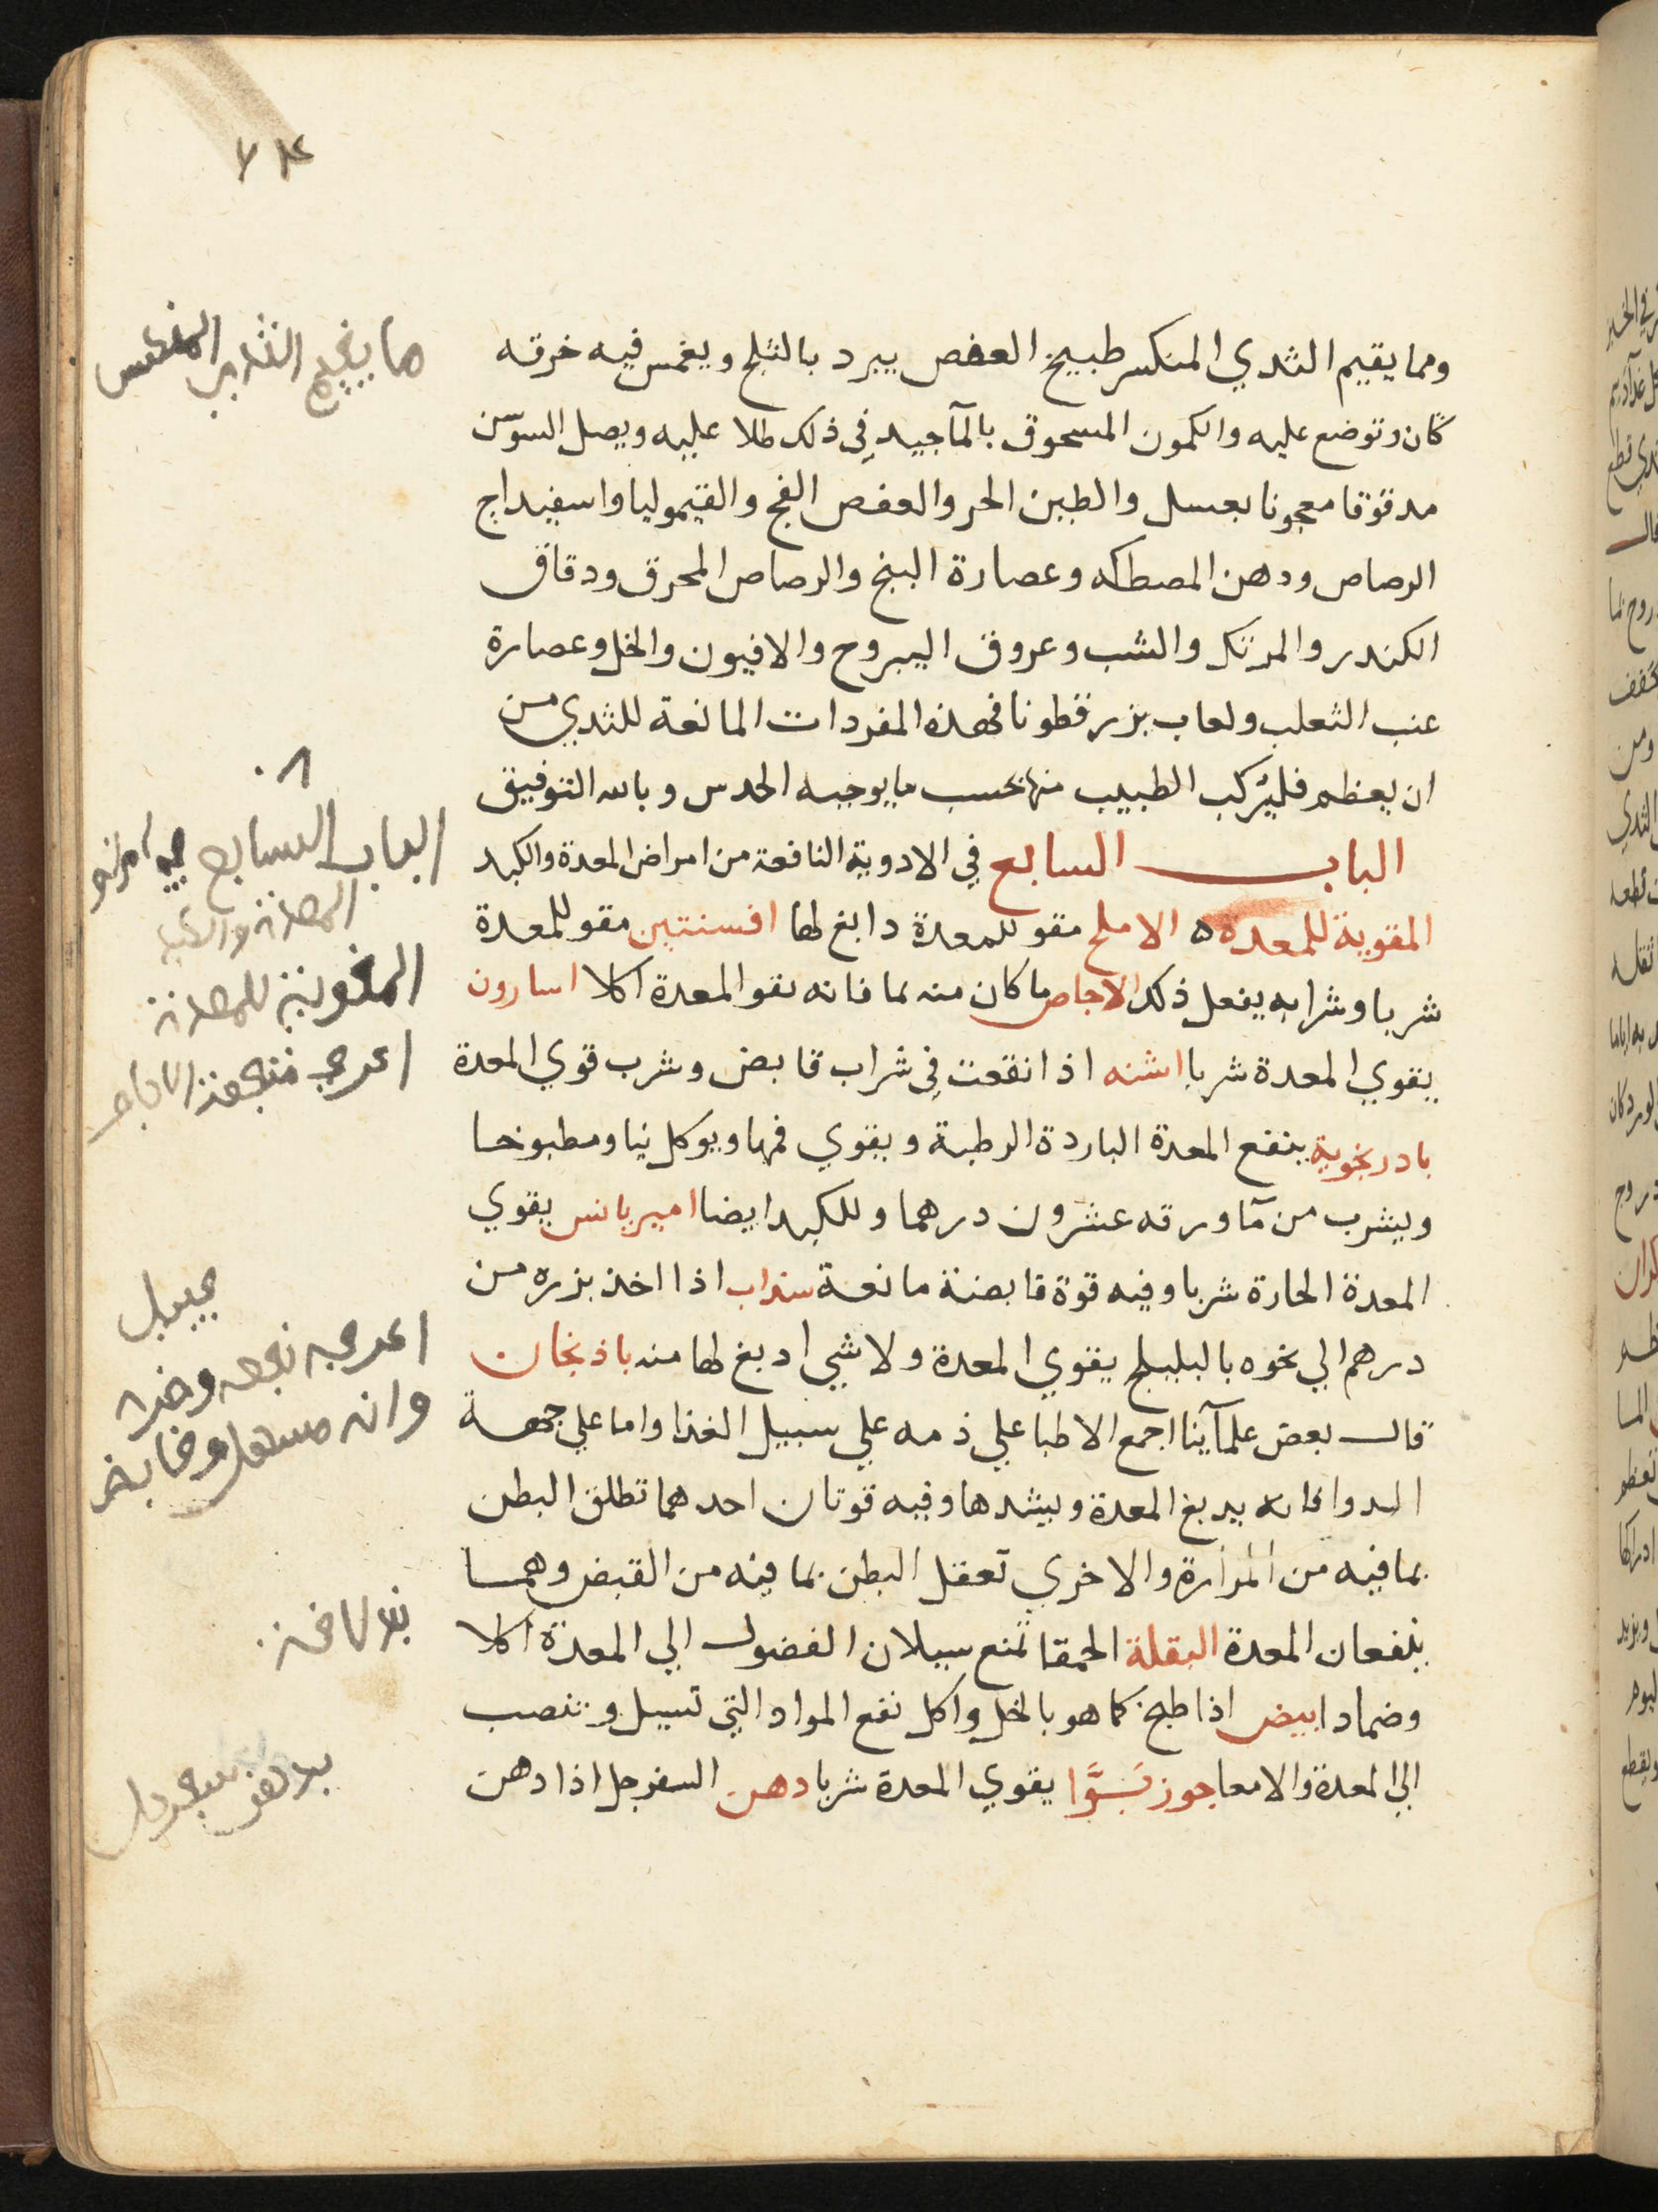 ومما يقيم الثدي المنكسر طبيخ العفص يبرد بالثلج ويغمس فيه خرقه
كتان وتوضع عليه والكمون المسحوق بالمآ جيد في ذلك طلا عليه وبصل السوسن
مدقوقا معجونا بعسل والطين الحر والعفص الفج والقيموليا واسفيداج
الرصاص ودهن المصطكه وعصارة البنج والرصاص المحرق ودقاق
الكندر والمرتك والشب وعروق اليبروح والافيون والخل وعصارة
عنب الثعلب ولعاب بزر قطونا فهذه المفردات المانعة للثدي من
ان يعظم فليركب الطبيب منها بحسب ما يوجبه الحدس وبالله التوفيق
الباب السابع في الادوية النافعة من امراض المعدة والكبد
المقوية للمعدة ه الاملج مقو للمعدة دابغ لها افسنتين مقو للمعدة
شربا وشرابه يفعل ذلك الاجاص ما كان منه فانه يقو المعدة اكلا اسارون
يقوي المعدة شربا اشنه اذا انقعت في شراب قابض وشرب قوي المعدة
بادرنجوية ينفع المعدة الباردة الرطبة ويقوي فمها ويوكل نيا ومطبوخا
ويشرب من مآ ورقه عشرون درهما وللكبد ايضا اميرباس يقوي
المعدة الحارة شربا وفيه قوة قابضة مانعة سذاب اذا اخذ بزره من
درهم الي نحوه بالبليلج يقوي المعدة ولا شي ادبغ لها منه باذنجان
قال بعض علمآينا اجمع الاطبا علي ذمه علي سبيل الغذا واما علي جهة
الدوا فانه يدبغ المعدة ويشدها وفيه قوتان احدهما تطلق البطن
بما فيه من المرارة والاخري تعقل البطن بما فيه من القبض وهما
ينفعان المعدة البقلة الحمقا تمنع سيلان الفضول الي المعدة اكلا
وضمادا بيض اذا طبخ كما هو بالخل واكل نفع المواد التي تسيل وتنصب
الي المعدة والامعا جوز بَوَّا يقوي المعدة شربا دهن السفرجل اذا دهن
الباب السابع
المقوية للمعدة